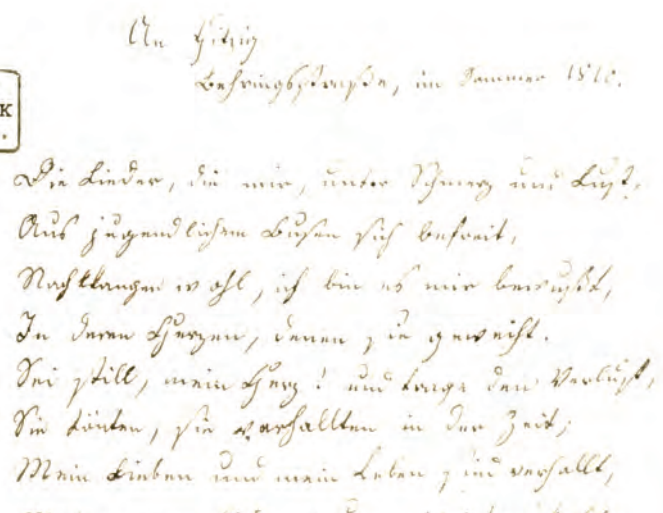 An Hitzig
Behringsstraße, im Sommer 1816.
K
Die Lieder, die mir, unter Schmerz und Lust,
Aus jugendlichem Busen sich befreit,
Nachklangen wohl, ich bin es mir bewußt,
In deren Herzen, denen sie geweiht.
Sei still, mein Herz! und trage den Verlust,
Sie tönten, sie verhallten in der Zeit;
Mein Lieben und mein Leben sind verhallt,